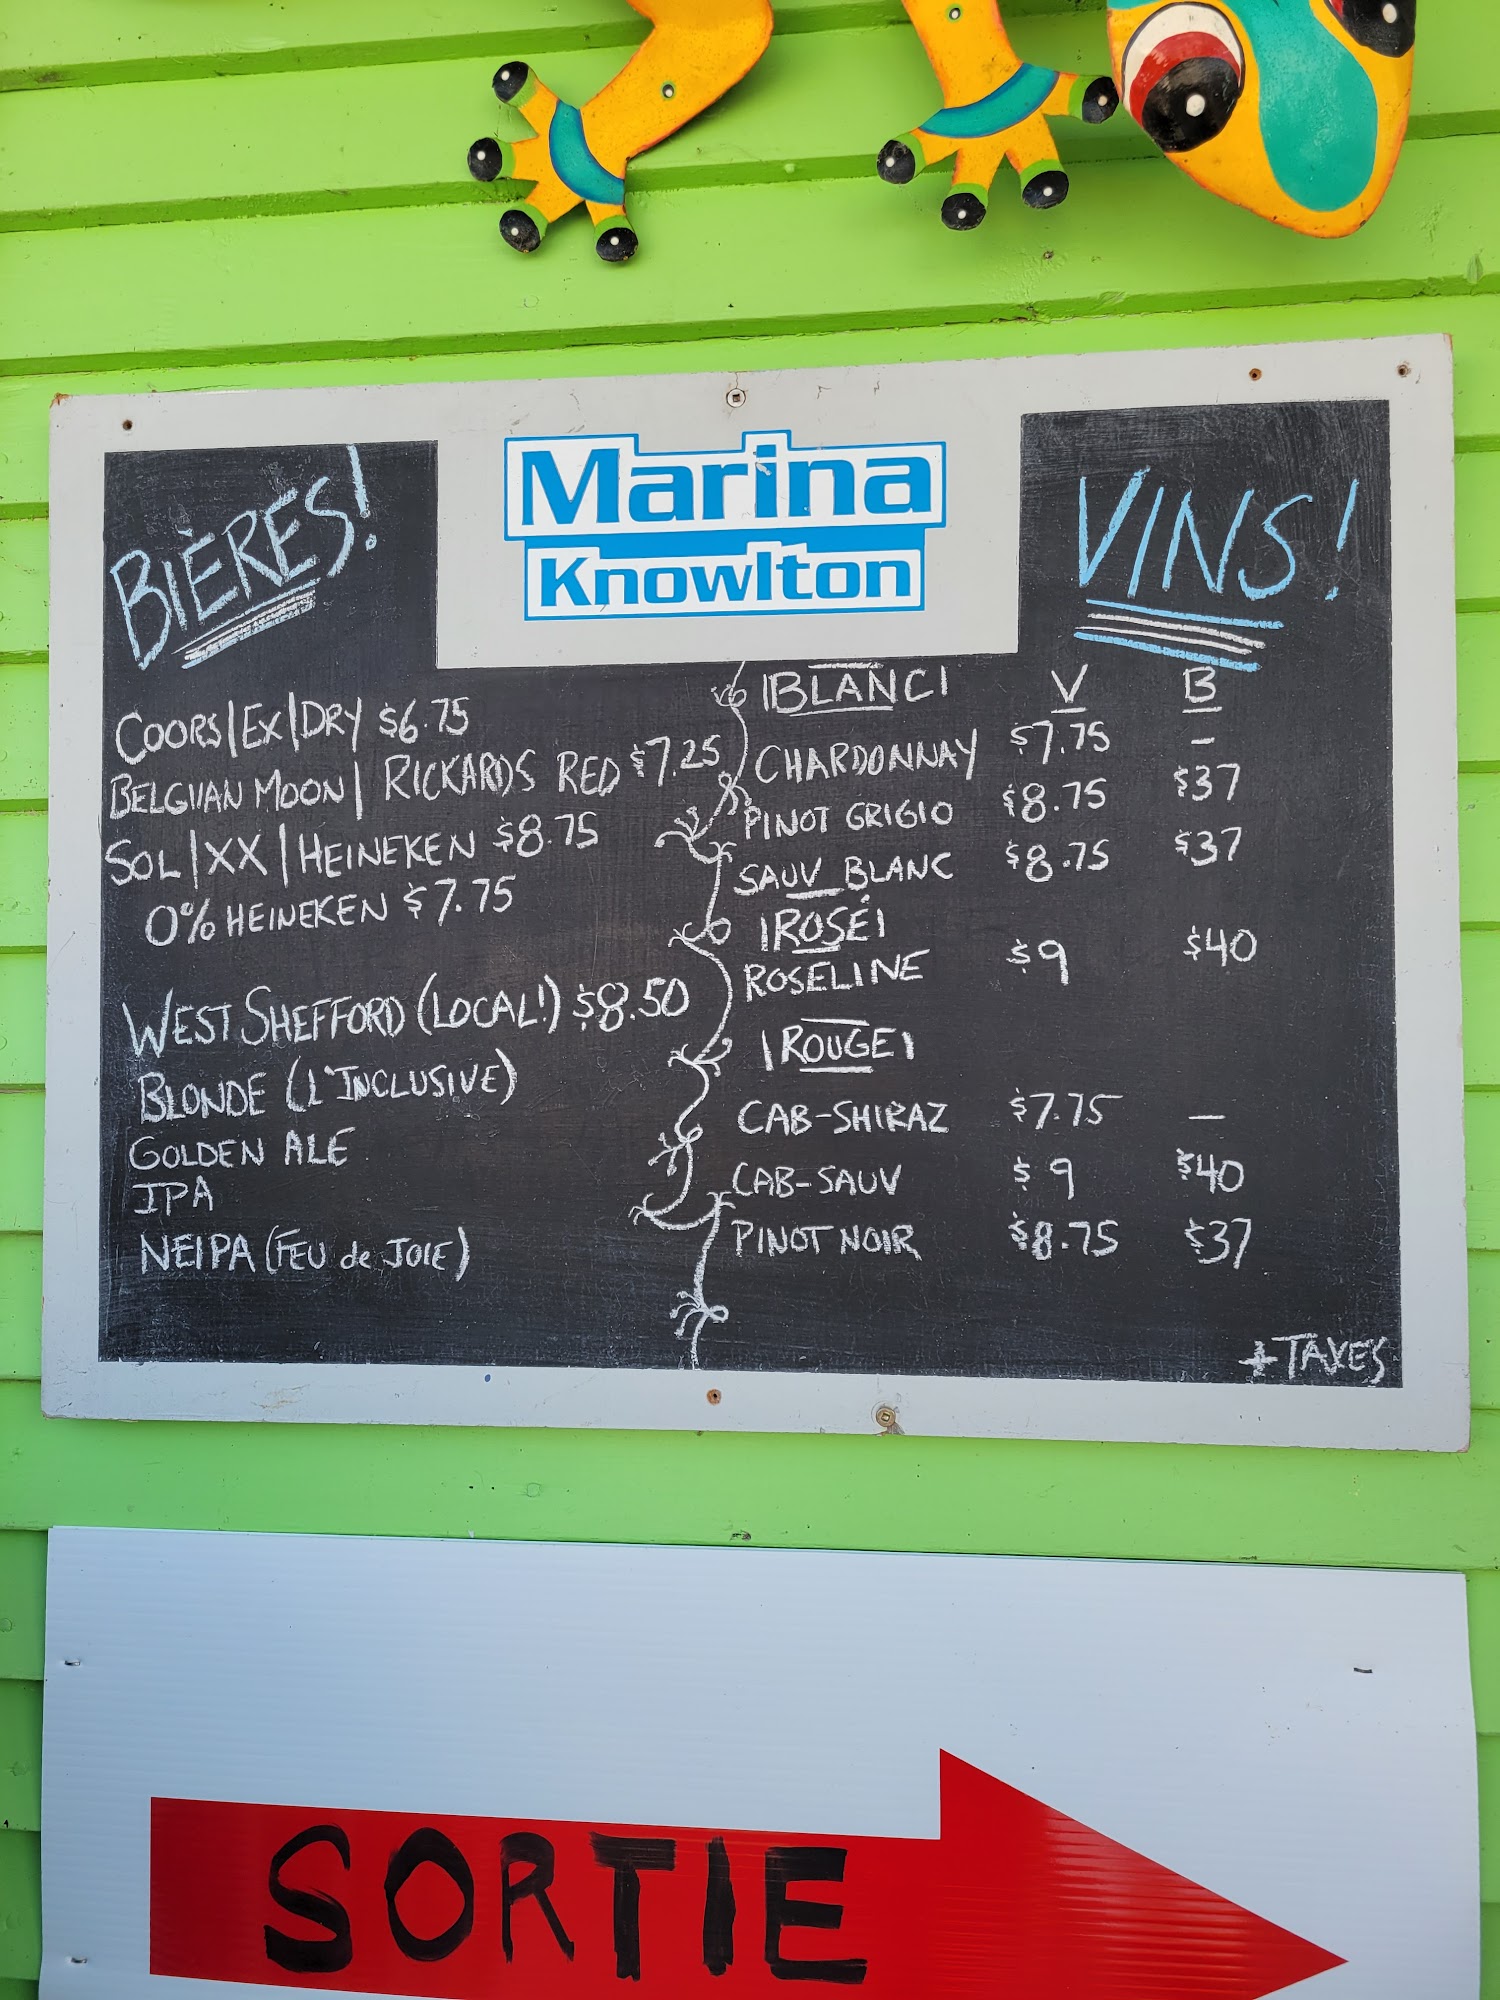 Marina
Knowlton
BIÈRES!
COORS|EX|DRY $6.75
BELGIIAN MOON| RICKARDS RED $7.25
SOL|XX|HEINEKEN $8.75
0% HEINEKEN $7.75
WEST SHEFFORD (LOCAL!) $8.50
BLONDE (L'INCLUSIVE)
GOLDEN ALE
IPA
NEIPA (FEU de JOIE)
VINS!
|BLANC| V B
CHARDONNAY $7.75 —
PINOT GRIGIO $8.75 $37
SAUV BLANC $8.75 $37
|ROSÉ|
ROSELINE $9 $40
|ROUGE|
CAB-SHIRAZ $7.75 —
CAB-SAUV $9 $40
PINOT NOIR $8.75 $37
+TAXES
SORTIE